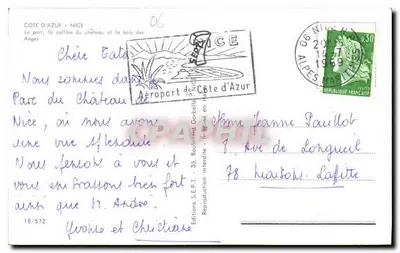 06
COTE D'AZUR - NICE
Le port, la colline du château et la baie des
Anges
Chère Tata
Nous sommes dans
Parc du Château de
Nice, où nous avons
une vue splendide
Nous pensons à vous et
vous embrassons bien fort
ainsi que Mr. André.
Yvonne et Christiane
18/572
Editions S.E.P.T. - 35, Boulevard
Reproduction interdite
NICE
Aéroport de Côte d'Azur
06 NICE
1969
ALPES
0,30
REPUBLIQUE FRANCAISE
Jeanne Paillot
7, Rue de Longueil
78. Maisons-Lafitte